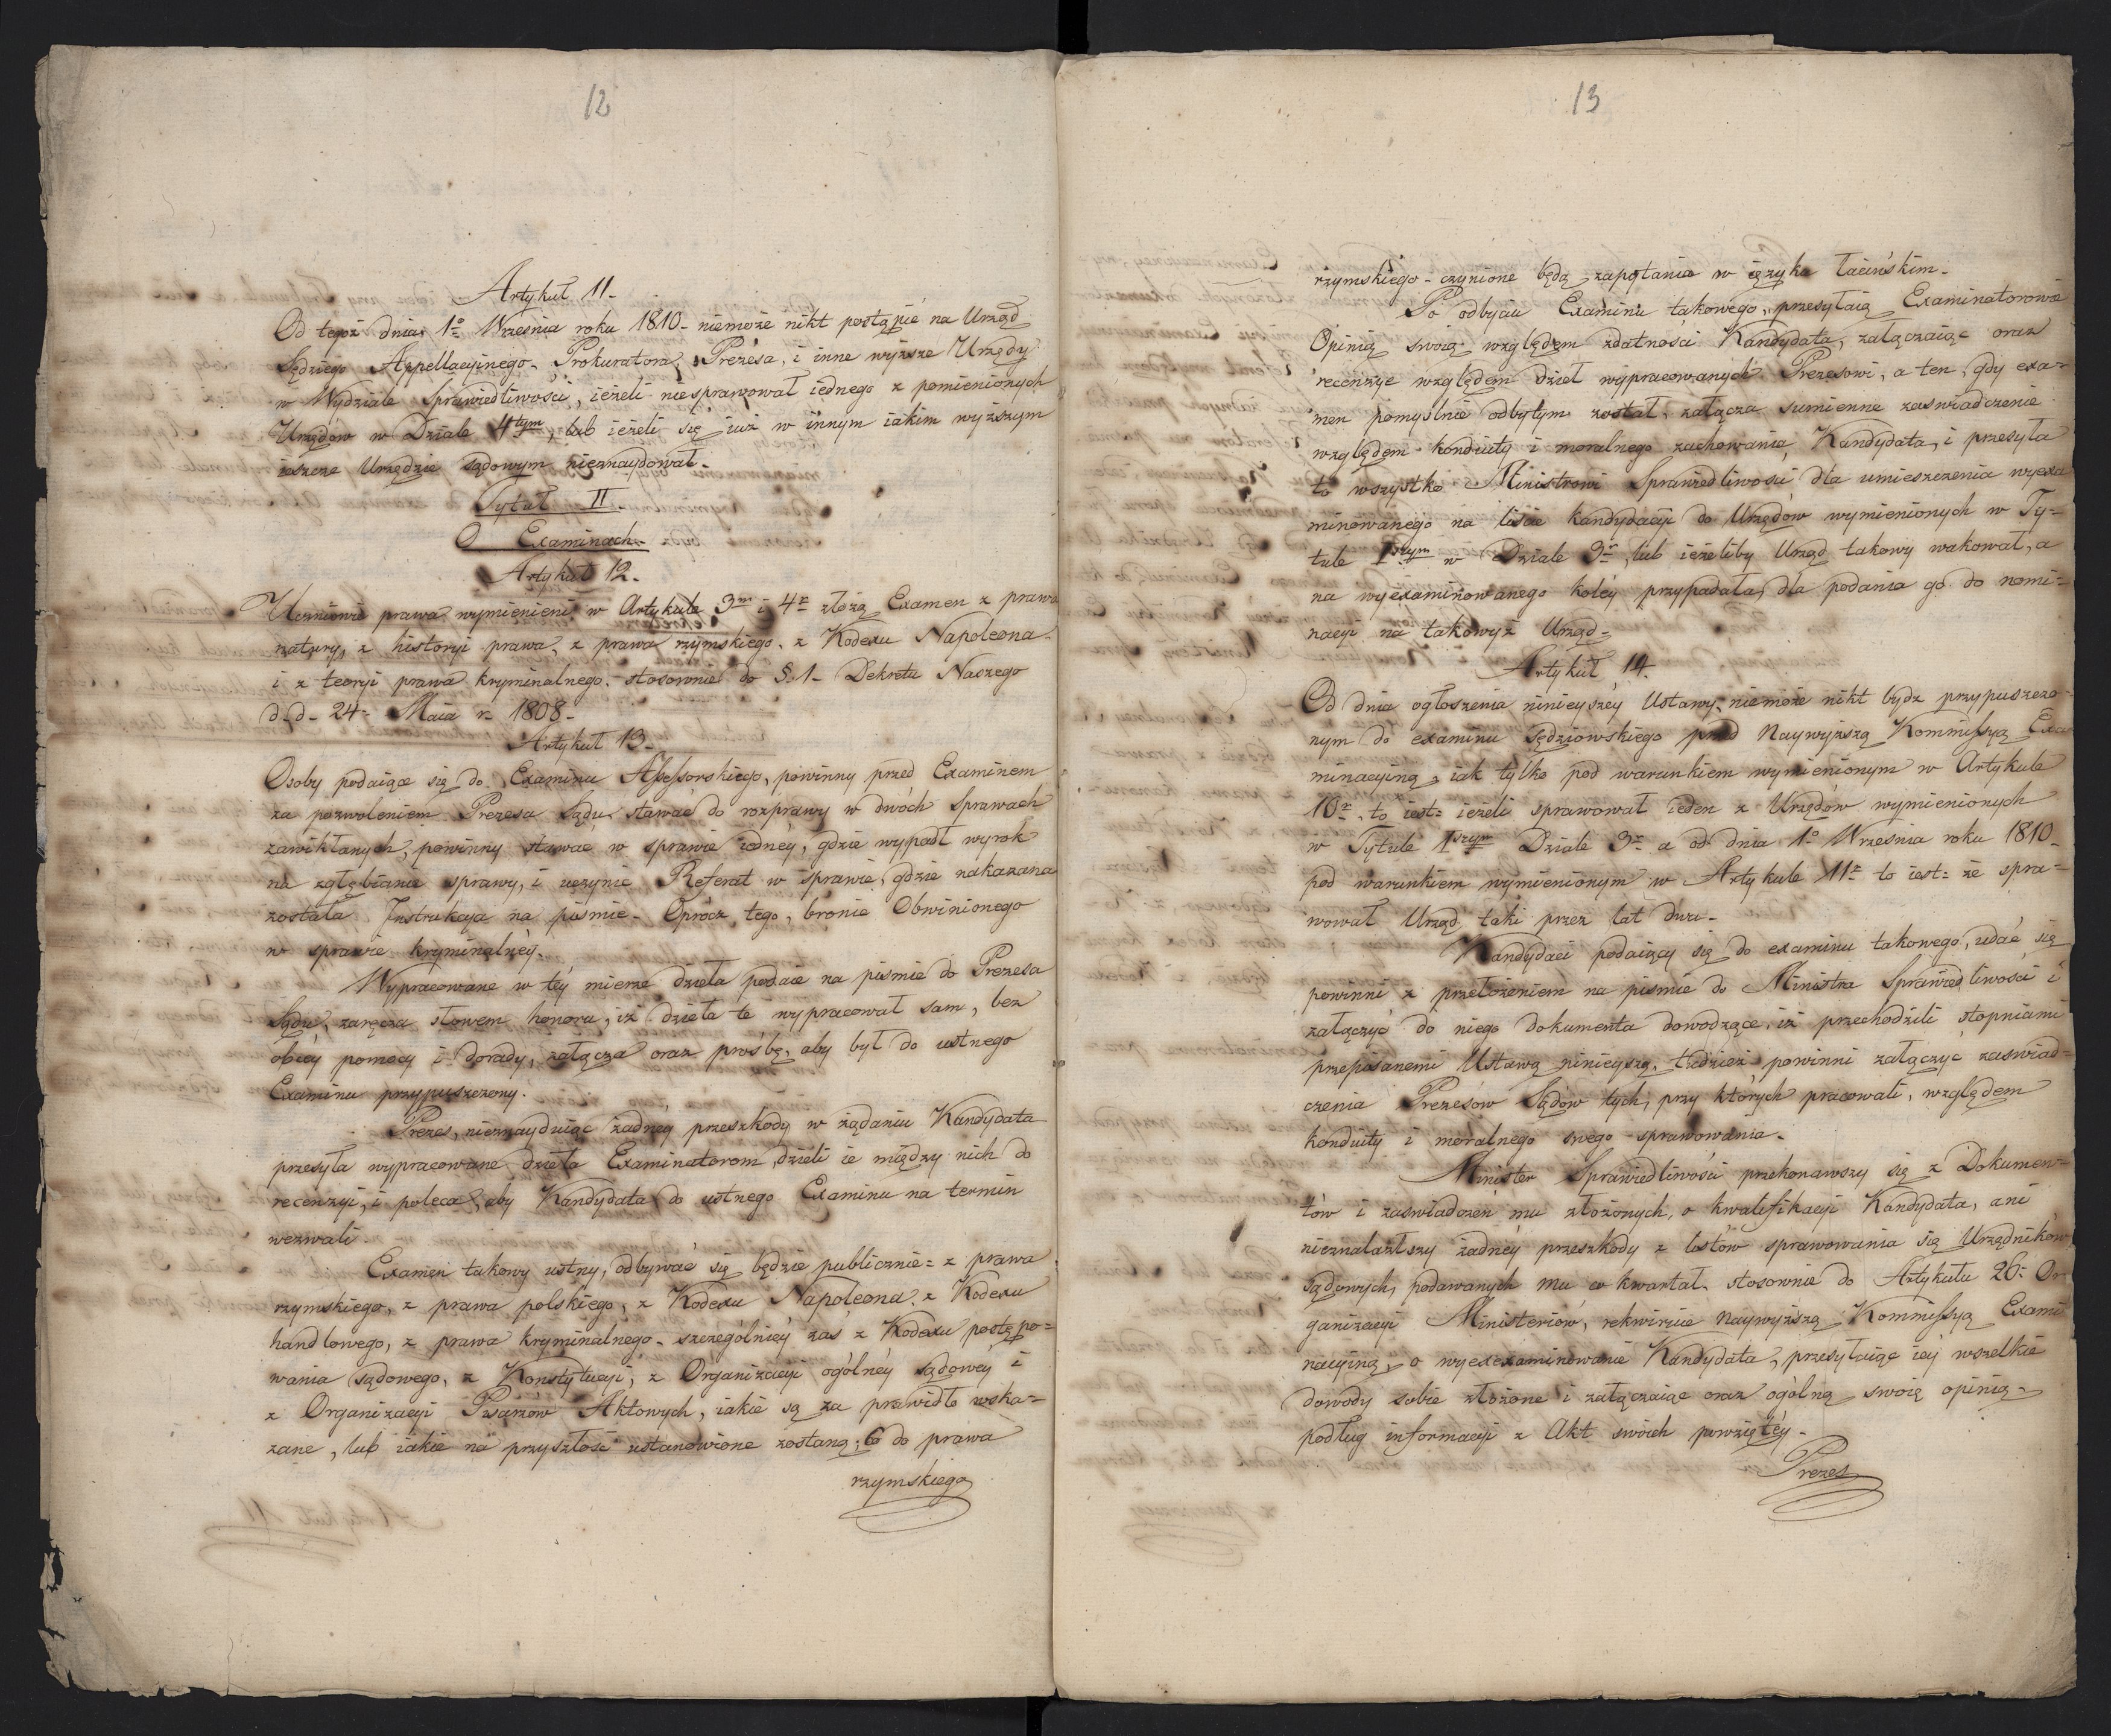 12
Artykuł 11.
Od tegoż dnia 1o Września roku 1810 niemoże nikt postąpić na Urząd
Sędziego Appellacyinego, Prokuratora, Prezesa, i inne wyższe Urzędy
w Wydziale Sprawiedliwości, ieżeli niesprawował iednego z pomienionych
Urzędów w Dziale 4tym, lub ieżeli się iuż w innym iakim wyższym
ieszcze Urzędzie sądowym nieznaydował.
Tytuł II.
O Examinach.
Artykuł 12.
Uczniowie prawa wymienieni w Artykule 3m i 4m złożą Examen z prawa
natury, z historyi prawa, z prawa rzymskiego, z Kodexu Napoleona
i z teoryi prawa kryminalnego, stosownie do §. 1. Dekretu Naszego
d. d. 24. Maia r. 1808.
Artykuł 13.
Osoby podaiące się do Examinu Assessorskiego, powinny przed Examinem
za pozwoleniem Prezesa Sądu stawać do rozprawy w dwóch sprawach
zawikłanych, powinny stawać w sprawie iednéy, gdzie wypadł wyrok
na zgłębianie sprawy, i uczynić Referat w sprawie, gdzie nakazana
została Instrukcya na piśmie. Oprócz tego, bronić Obwinionego
w sprawie kryminalnéy.
Wypracowane w téy mierze dzieła podaie na pismie do Prezesa
Sądu, zaręcza słowem honoru, iż dzieła te wypracował sam, bez
obcéy pomocy i dorady, załącza oraz prośbę, aby był do ustnego
Examinu przypuszczony.
Prezes, nieznayduiąc żadnéy przeszkody w żądaniu Kandydata
przesyła wypracowane dzieła Examinatorom, dzieli ie między nich do
recenzyi, i poleca, aby Kandydata do ustnego Examinu na termin
wezwali.
Examen takowy ustny, odbywać się będzie publicznie: z prawa
rzymskiego, z prawa polskiego, z Kodexu Napoleona, z Kodexu
handlowego, z prawa kryminalnego, szczególniéy zaś z Kodexu postępo=
wania sądowego, z Konstytucyi, z Organizacyi ogólnéy sądowéy i
z Organizacyi Pisarzów Aktowych, iakie są za prawidło wska=
zane, lub iakie na przyszłość ustanowione zostaną; Co do prawa
rzymskiego
13
rzymskiego czynione będą zapytania w ięzyku łacińskim.
Po odbyciu Examinu takowego, przesyłaią Examinatorowie
Opinią swoią względem zdatności Kandydata, załączaiąc oraz
recenzye względem dzieł wypracowanych Prezesowi, a ten, gdy exa=
men pomyślnie odbytym został, załącza sumienne zaswiadczenie
względem konduity i moralnego zachowania Kandydata, i przesyła
to wszystko Ministrowi Sprawiedliwości dla umieszczenia wyexa
minowanego na liście kandydacyi do Urzędów wymienionych w Ty=
tule 1szym w Dziale 3m, lub ieżeliby Urząd takowy wakował, a
na wyexaminowanego koléy przypadała, dla podania go do nomi=
nacyi na takowyż Urząd.
Artykuł 14.
Od dnia ogłoszenia ninieyszéy Ustawy, niemoże nikt bydź przypuszczo=
nym do examinu sędziowskiego przed Naywyższą Kommissyą Exa
minacyiną, iak tylko pod warunkiem wymienionym w Artykule
10m, to iest: ieżeli sprawował ieden z Urzędów wymienionych
w Tytule 1szym Dziale 3m a od dnia 1o Września roku 1810
pod warunkiem wymienionym w Artykule 11m to iest: że spra=
wował Urząd taki przez lat dwa.
Kandydaci podaiący się do examinu takowego, udać się
powinni z przełożeniem na piśmie do Ministra Sprawiedliwości i
załączyć do niego dokumenta dowodzące, iż przechodzili stopniami
przepisanemi Ustawą ninieyszą, tudzież powinni załączyć zaswiad=
czenia Prezesów Sądów tych, przy których pracowali, względem
konduity i moralnego swego sprawowania.
Minister Sprawiedliwości przekonawszy się z Dokumen=
tów i zaswiadczeń mu złożonych, o kwalifikacyi Kandydata, ani
nieznalazłszy żadnéy przeszkody z listów sprawowania się Urzędników
sądowych, podawanych mu co kwartał, stosownie do Artykułu 26. Or
ganizacyi Ministeriów, rekwiruie Naywyższą Kommissyą Exami
nacyiną, o wyexexaminowanie Kandydata, przesyłaiąc iéy wszelkie
dowody sobie złożone i załączaiąc oraz ogólną swoię opinią,
podług informacyi z Akt swoich powziętéy.
Prezes